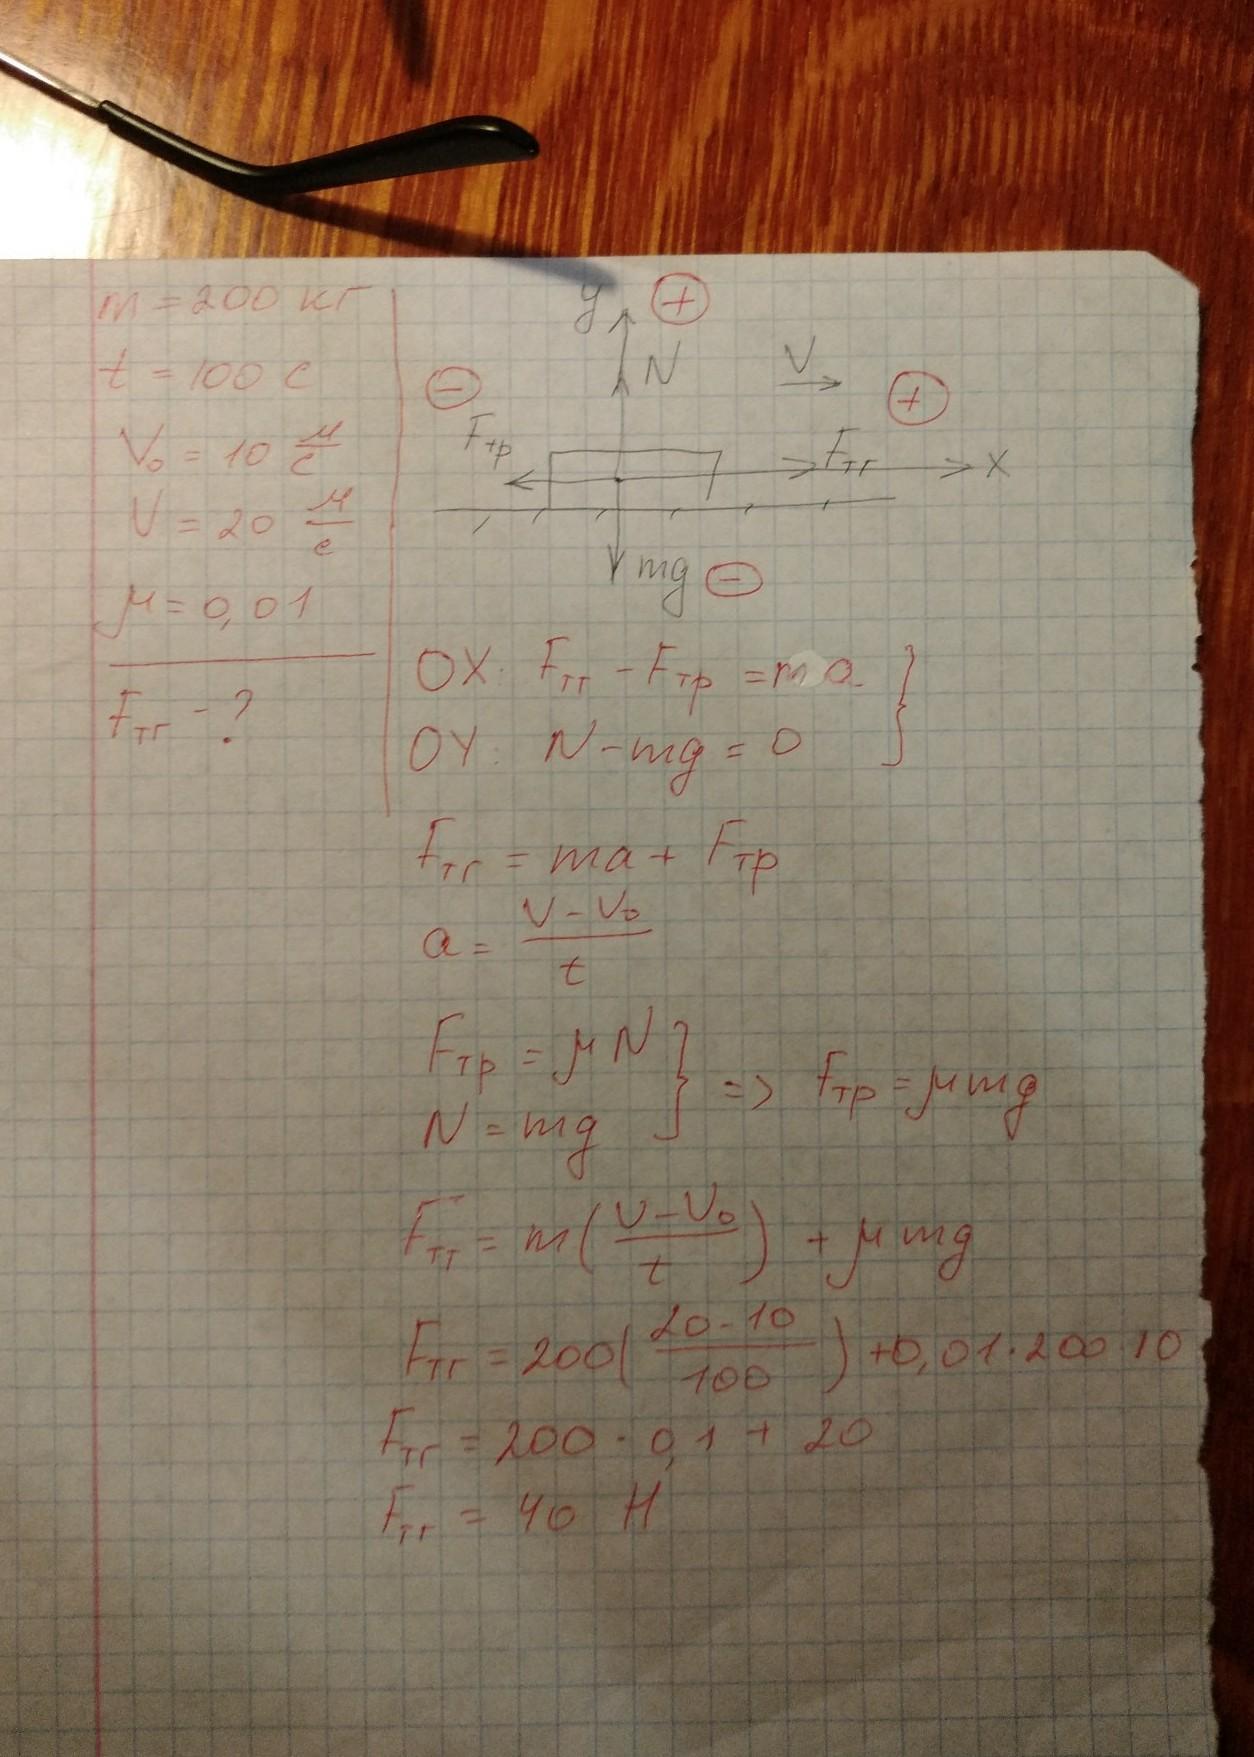 m = 200 кг
t = 100 с
V₀ = 10 м/с
V = 20 м/с
μ = 0,01
Fтг - ?
y +
N
V
- +
Fтр
Fтг
X
mg -
OX: Fтг - Fтр = ma }
OY: N - mg = 0
Fтг = ma + Fтр
a = (V - V₀)/t
Fтр = μN } => Fтр = μmg
N = mg
Fтт = m((V - V₀)/t) + μmg
Fтг = 200((20 - 10)/100) + 0,01 · 200 · 10
Fтг = 200 · 0,1 + 20
Fтг = 40 Н